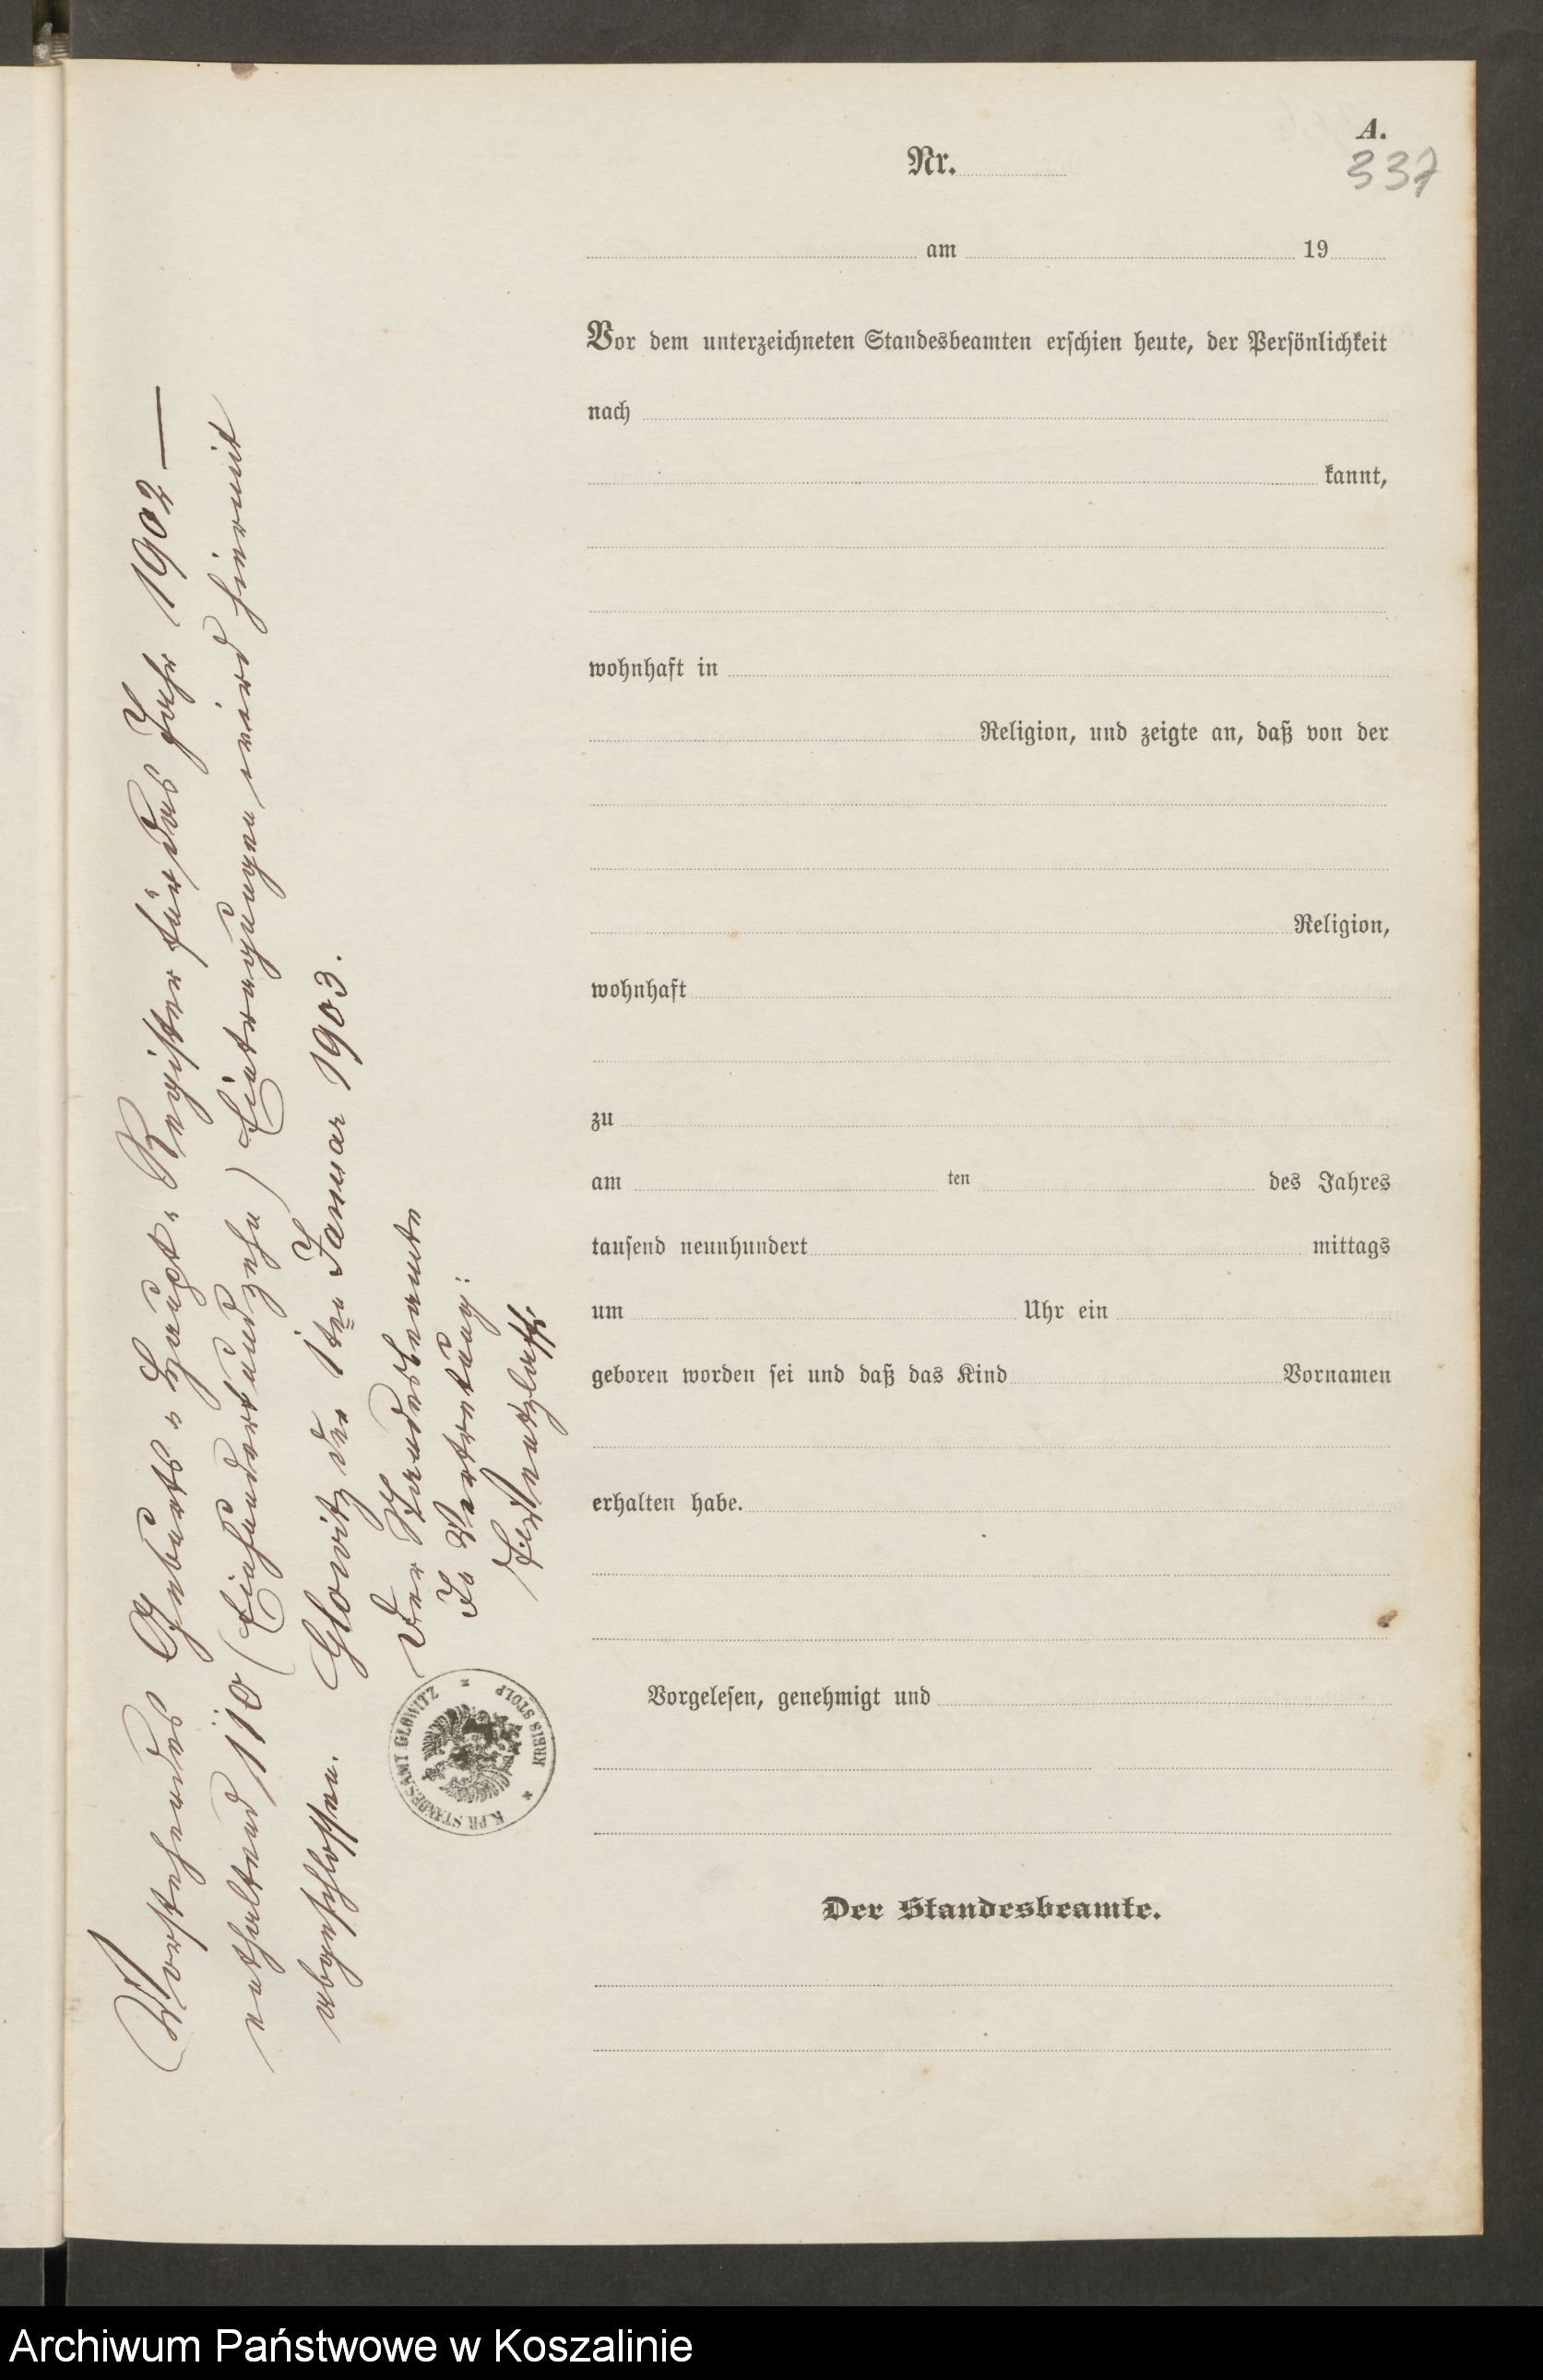 A.
337
Nr.
am 19
Vor dem unterzeichneten Standesbeamten erschien heute, der Persönlichkeit
nach
kannt,
wohnhaft in
Religion, und zeigte an, daß von der
Religion,
wohnhaft
zu
am ten des Jahres
tausend neunhundert mittags
um Uhr ein
geboren worden sei und daß das Kind Vornamen
erhalten habe.
Vorgelesen, genehmigt und
Der Standesbeamte.
Vorstehendes Geburts-Haupt-Register für das Jahr 1902 —
enthaltend 110 (Einhundertundzehn) Eintragungen, wird hiermit
abgeschlossen. Glowitz den 1ten Januar 1903.
Der Standesbeamte
In Vertretung:
K. PR. STANDESAMT GLOWITZ * KREIS STOLP *
Archiwum Państwowe w Koszalinie